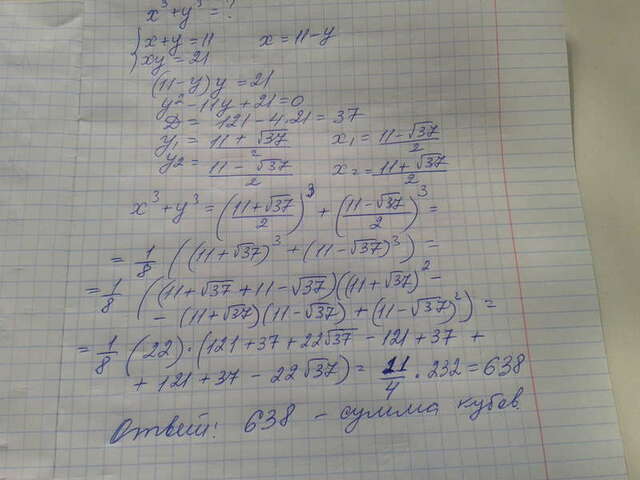 x³+y³=?
{x+y=11 x=11-y
xy=21
(11-y)y=21
y²-11y+21=0
D= 121-4·21=37
y₁= (11+√37)/2 x₁= (11-√37)/2
y₂= (11-√37)/2 x₂= (11+√37)/2
x³+y³=((11+√37)/2)³+((11-√37)/2)³=
=1/8((11+√37)³+(11-√37)³)=
=1/8((11+√37+11-√37)(11+√37)²-
-(11+√37)(11-√37)+(11-√37)²)=
=1/8(22)·(121+37+22√37-121+37+
+121+37-22√37)=11/4·232=638
Ответ: 638 - сумма кубов.